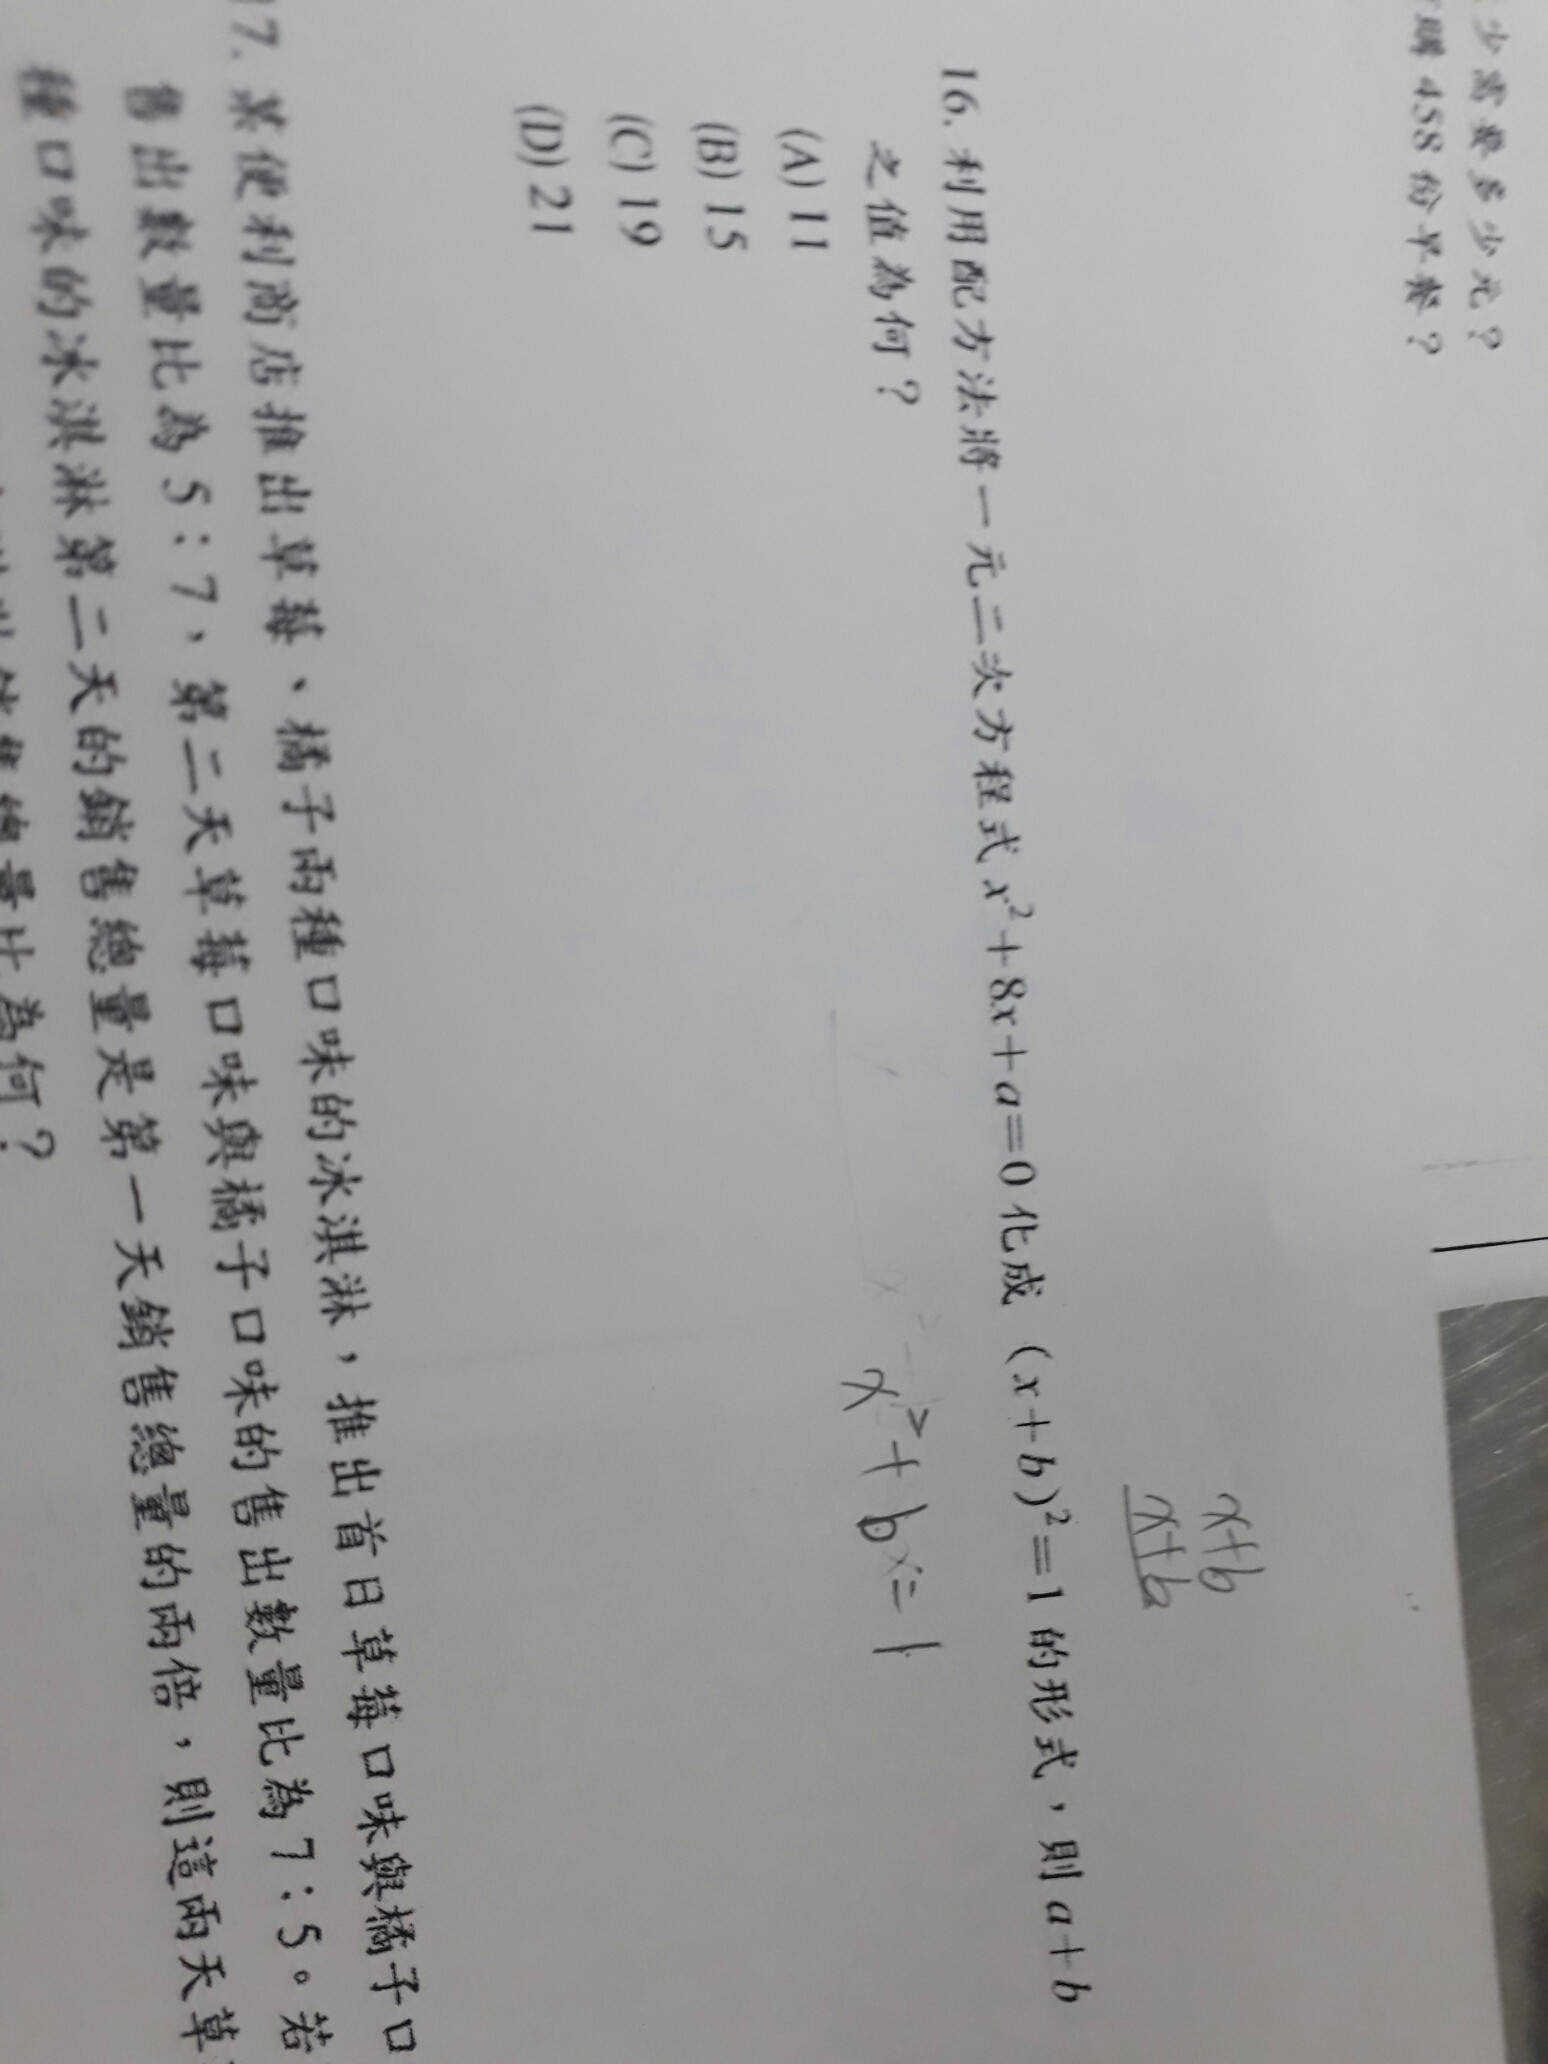 少需要多少元？
購 458 份早餐？
x+b
x+b
16. 利用配方法將一元二次方程式 x²+8x+a=0 化成 (x+b)²=1 的形式，則 a+b
之值為何？
x²+bx=1
(A) 11
(B) 15
(C) 19
(D) 21
17. 某便利商店推出草莓、橘子兩種口味的冰淇淋，推出首日草莓口味與橘子口
售出數量比為 5：7，第二天草莓口味與橘子口味的售出數量比為 7：5。若
種口味的冰淇淋第二天的銷售總量是第一天銷售總量的兩倍，則這兩天草
銷售總量比為何？